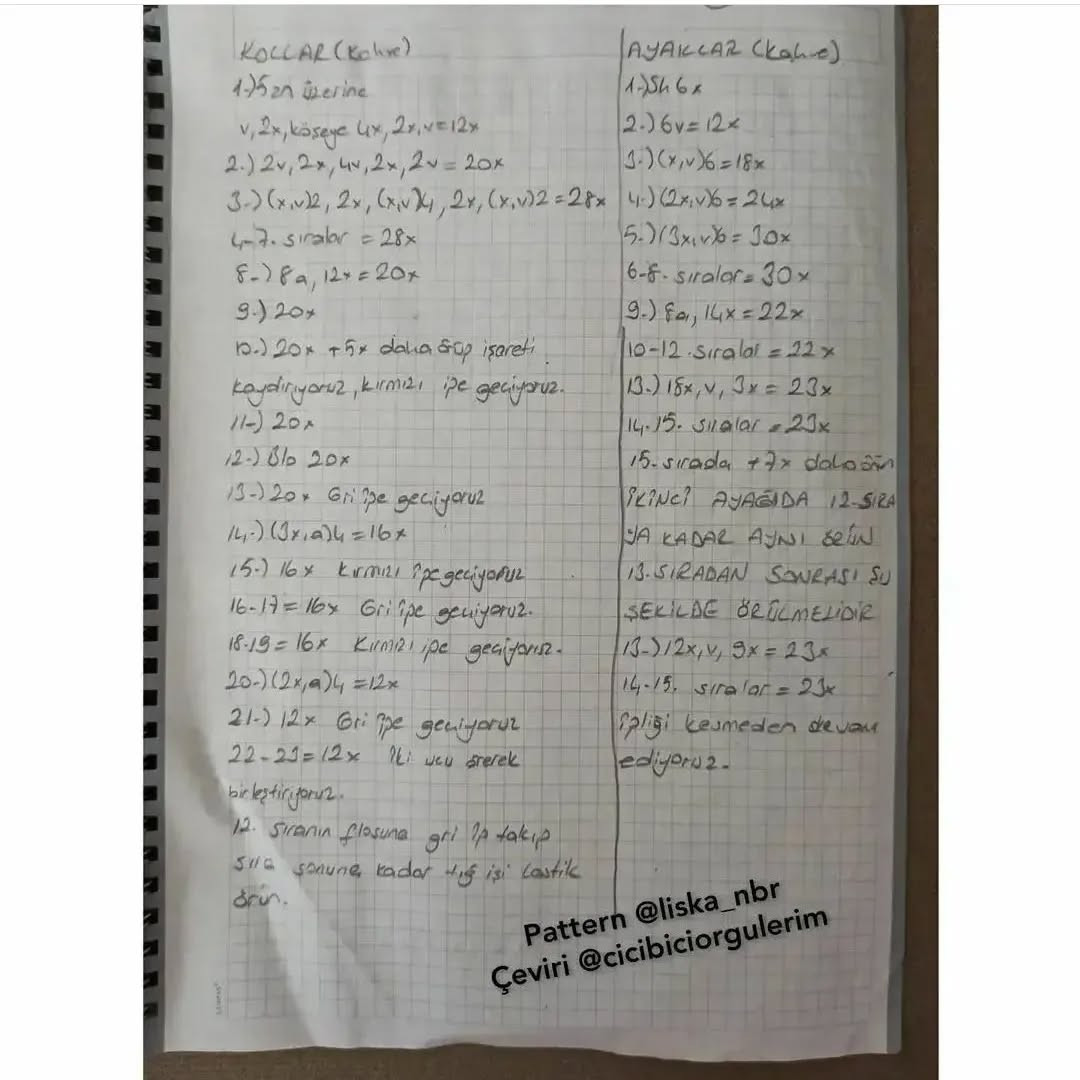 KOLLAR (Kahve)
1-)5zn üzerine
v, 2x, köşeye 4x, 2x, v = 12x
2.) 2v, 2x, 4v, 2x, 2v = 20x
3-) (x,v)2, 2x, (x,v)4, 2x, (x,v)2 = 28x
4-7. sıralar = 28x
8-) 8a, 12x = 20x
9-) 20x
10-) 20x +5x daha örüp işareti
kaydırıyoruz, kırmızı ipe geçiyoruz.
11-) 20x
12-) Blo 20x
13-) 20x Gri ipe geçiyoruz
14-) (3x,a)4 = 16x
15-) 16x Kırmızı ipe geçiyoruz
16-17 = 16x Gri ipe geçiyoruz.
18-19 = 16x Kırmızı ipe geçiyoruz.
20-) (2x,a)4 = 12x
21-) 12x Gri ipe geçiyoruz
22-23 = 12x İki ucu örerek
birleştiriyoruz.
12. sıranın flosuna gri ip takıp
sıra sonuna kadar tığ işi lastik
örün.
AYAKLAR (Kahve)
1-)Sh 6x
2-) 6v = 12x
3-) (x,v)6 = 18x
4-) (2x,v)6 = 24x
5-) (3x,v)6 = 30x
6-8. sıralar = 30x
9-) 8a, 14x = 22x
10-12. sıralar = 22x
13.) 18x, v, 3x = 23x
14-15. sıralar = 23x
15. sırada +7x daha örün
İKİNCİ AYAĞIDA 12-SIRA
YA KADAR AYNI ÖRÜN
13. SIRADAN SONRASI ŞU
ŞEKİLDE ÖRÜLMELİDİR
13-) 12x, v, 9x = 23x
14-15. sıralar = 23x
İpliği kesmeden devam
ediyoruz.
Pattern @liska_nbr
Çeviri @cicibiciorgulerim